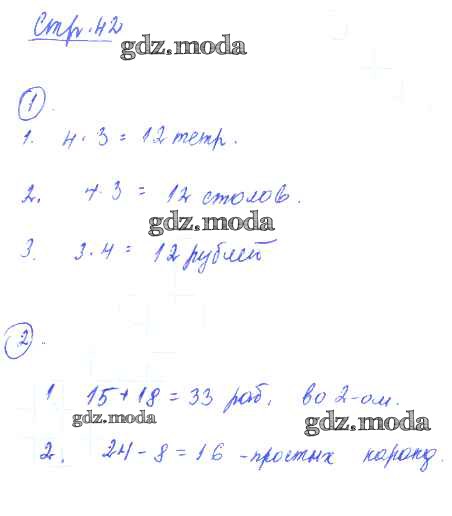 Стр. 42
gdz.moda
1.
1. 4 · 3 = 12 тетр.
2. 4 · 3 = 12 столов.
gdz.moda
3. 3 · 4 = 12 рублей
2.
1 15 + 18 = 33 раб. во 2-ом.
gdz.moda gdz.moda
2. 24 - 8 = 16 - простых каранд.